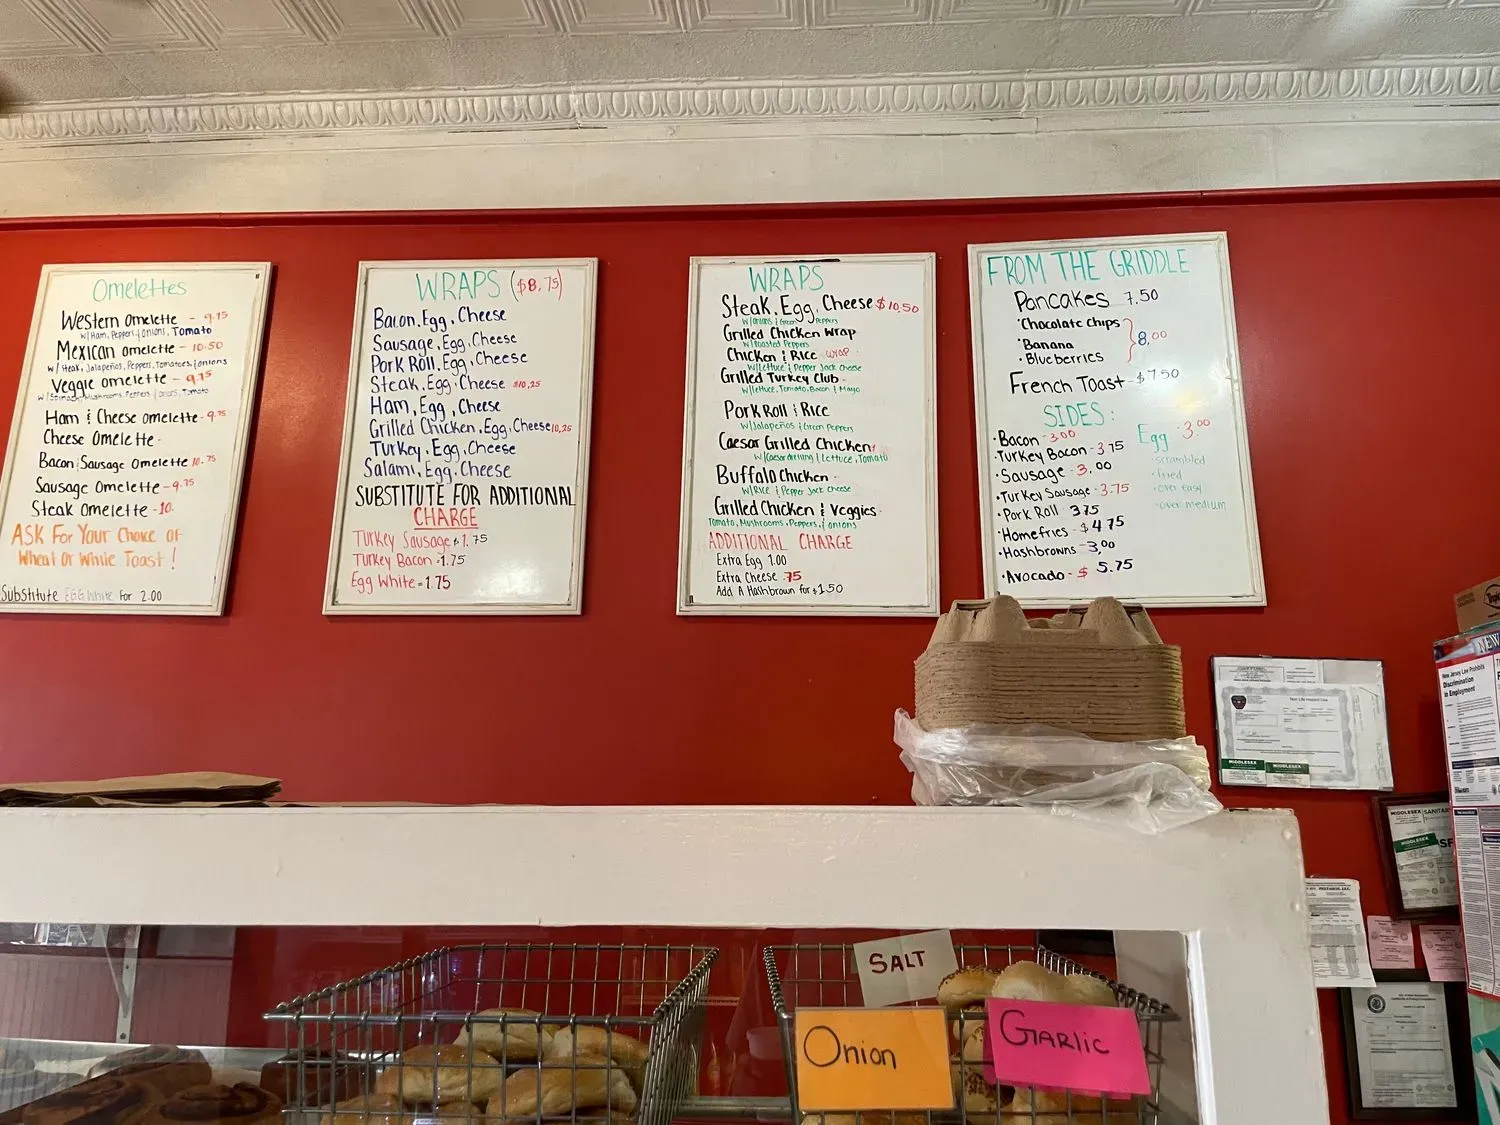 Omelettes
Western Omelette - 9.75
w/ Ham, Peppers, onions, Tomato
Mexican Omelette - 10.50
w/ Steak, Jalapeños, Peppers, Tomatoes, onions
Veggie omelette - 9.75
w/ Spinach, Mushrooms, Peppers, onions, Tomato
Ham & Cheese Omelette - 9.75
Cheese Omelette -
Bacon Sausage Omelette 10.75
Sausage Omelette - 9.75
Steak Omelette - 10.
ASK For Your Choice of
Wheat or White Toast !
Substitute EGG White For 2.00
WRAPS ($8.75)
Bacon, Egg, Cheese
Sausage, Egg, Cheese
Pork Roll, Egg, Cheese
Steak, Egg, Cheese $10.25
Ham, Egg, Cheese
Grilled Chicken, Egg, Cheese 10.25
Turkey, Egg, Cheese
Salami, Egg, Cheese
SUBSTITUTE FOR ADDITIONAL
CHARGE
Turkey Sausage $1.75
Turkey Bacon - 1.75
Egg White - 1.75
WRAPS
Steak, Egg, Cheese $10.50
w/onions & Green Peppers
Grilled Chicken Wrap
w/Roasted Peppers
Chicken & Rice wrap
w/Lettuce & Pepper Jack Cheese
Grilled Turkey Club
w/lettuce, Tomato, Bacon & Mayo
Pork Roll & Rice
w/Jalapeños & Green Peppers
Caesar Grilled Chicken
w/Caesar dressing & Lettuce, Tomato
Buffalo Chicken
w/Rice & Pepper Jack Cheese
Grilled Chicken & Veggies
Tomato, Mushrooms, Peppers, & onions
ADDITIONAL CHARGE
Extra Egg 1.00
Extra Cheese .75
Add A Hashbrown for $1.50
FROM THE GRIDDLE
Pancakes 7.50
•Chocolate Chips
•Banana
•Blueberries
8.00
French Toast - $7.50
SIDES:
•Bacon - 3.00
•Turkey Bacon - 3.75
•Sausage - 3.00
•Turkey Sausage - 3.75
•Pork Roll 3.75
•Homefries - $4.75
•Hashbrowns - 3.00
•Avocado - $5.75
Egg - 3.00
•scrambled
•fried
•over easy
•over medium
NEW
New Jersey Law Prohibits
Discrimination
in Employment
MIDDLESEX
MIDDLESEX
MIDDLESEX
SANITAR
MIDDLESEX
SALT
Onion
GARLIC